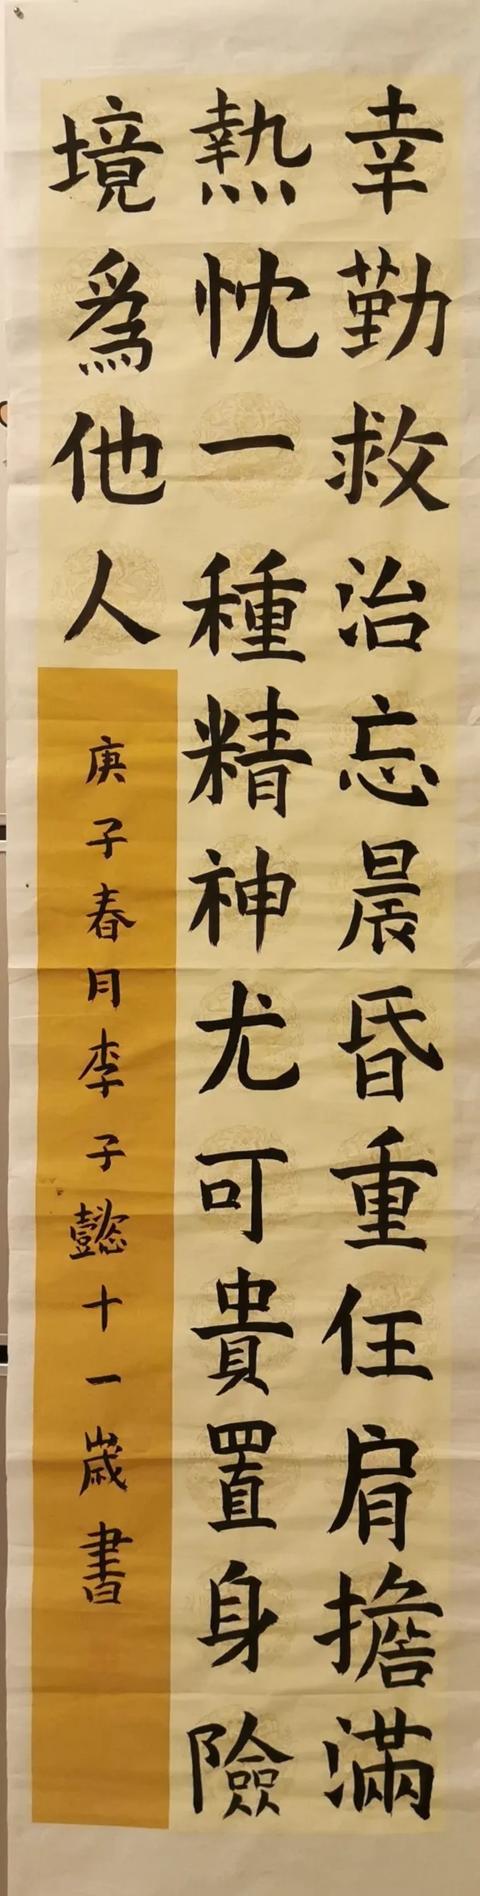 幸勤救治忘晨昏重任肩擔滿
熱忱一種精神尤可貴置身險
境為他人
庚子春月李子懿十一歲書